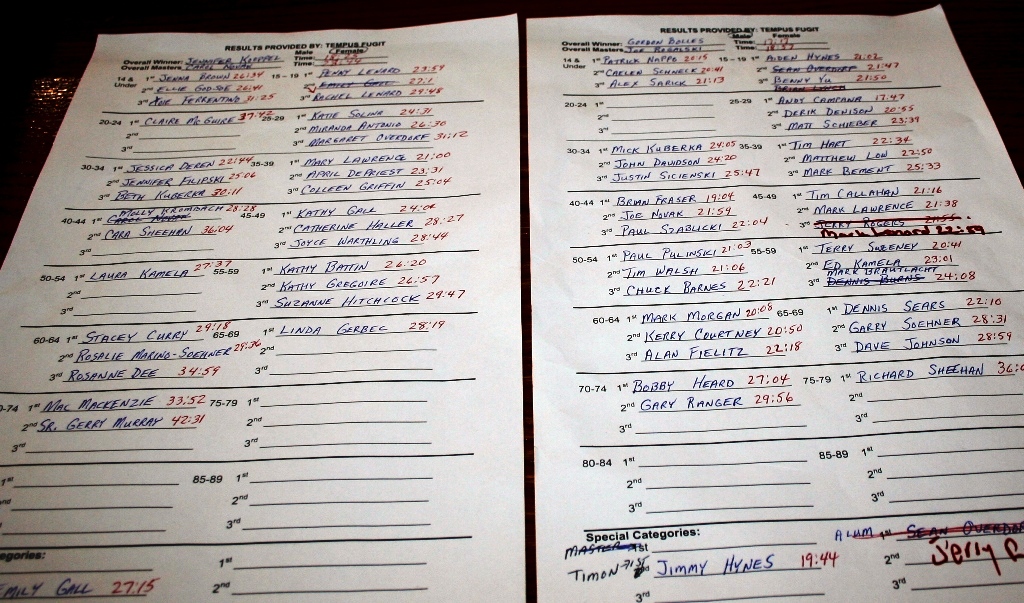 RESULTS PROVIDED BY: TEMPUS FUGIT
Male Female
Overall Winner: JENNIFER KOEPPEL Time:
Overall Masters: CARYL NOVAK Time:
14 & Under 1st JENNA BROWN 26:34 15 - 19 1st PENNY LENARD 23:59
2nd ELLIE GODSOE 26:41 2nd
3rd FERRENTINO 31:25 3rd RACHEL LENARD 24:48
20-24 1st CLAIRE MCGUIRE 37:42 25-29 1st KATIE SOLINA 24:31
2nd 2nd MIRANDA ANTONIO 26:30
3rd 3rd MARGARET OVERDORF 31:12
30-34 1st JESSICA DEREN 22:44 35-39 1st MARY LAWRENCE 21:00
2nd JENNIFER FILIPSKI 25:06 2nd APRIL DEPRIEST 23:31
3rd BETH KUBERKA 30:11 3rd COLLEEN GRIFFIN 25:04
40-44 1st MOLLY KROMBACH 28:28 45-49 1st KATHY GALL 24:04
2nd CARA SHEEHAN 36:04 2nd CATHERINE HALLER 28:27
3rd 3rd JOYCE WARTHLING 28:44
50-54 1st LAURA KAMELA 27:37 55-59 1st KATHY BATTIN 26:20
2nd 2nd KATHY GREGOIRE 26:57
3rd 3rd SUZANNE HITCHCOCK 29:47
60-64 1st STACEY CURRY 29:18 65-69 1st LINDA GERBEC 28:19
2nd ROSALIE MARINO-SOEHNER 29:36 2nd
3rd ROSANNE DEE 34:59 3rd
0-74 1st MAC MACKENZIE 33:52 75-79 1st
2nd SR. GERRY MURRAY 42:31 2nd
3rd 3rd
1st 85-89 1st
2nd
3rd
egories: 1st
EMILY GALL 27:15 2nd
RESULTS PROVIDED BY: TEMPUS FUGIT
Male Female
Overall Winner: GORDON BOLLES Time:
Overall Masters: JOE ROGALSKI Time:
14 & Under 1st PATRICK NAPPO 20:15 15 - 19 1st AIDEN HYNES 21:02
2nd CAELEN SCHNECK 20:41 2nd SEAN OVERDORF 21:47
3rd ALEX SARICK 21:13 3rd BENNY YU 21:50
BRIAN LYNCH
20-24 1st 25-29 1st ANDY CAMPANA 17:47
2nd 2nd DERIK DENISON 20:55
3rd 3rd MATT SCHIEBER 23:39
30-34 1st MICK KUBERKA 24:05 35-39 1st TIM HART 22:34
2nd JOHN DAVDSON 24:20 2nd MATTHEW LOW 22:50
3rd JUSTIN SICIENSKI 25:47 3rd MARK BEMENT 25:33
40-44 1st BRIAN FRASER 19:04 45-49 1st TIM CALLAHAN 21:16
2nd JOE NOVAK 21:59 2nd MARK LAWRENCE 21:38
3rd PAUL SZABLICKI 22:04 3rd JERRY ROGERS 21:55
Mark Lenard 22:59
50-54 1st PAUL PULINSKI 21:03 55-59 1st TERRY SWEENEY 20:41
2nd TIM WALSH 21:06 2nd ED KAMELA 23:01
3rd CHUCK BARNES 22:21 3rd MARK BRAUTLACHT DENNIS BURNS 24:08
60-64 1st MARK MORGAN 20:08 65-69 1st DENNIS SEARS 22:10
2nd KERRY COURTNEY 20:50 2nd GARRY SOEHNER 28:31
3rd ALAN FIELITZ 22:18 3rd DAVE JOHNSON 28:59
70-74 1st BOBBY HEARD 27:04 75-79 1st RICHARD SHEEHAN 36:0
2nd GARY RANGER 29:56 2nd
3rd 3rd
80-84 1st 85-89 1st
2nd 2nd
3rd 3rd
Special Categories: ALUM 1st SEAN OVERDOR
MASTER 1st 2nd Jerry
TIMON 1st JIMMY HYNES 19:44
3rd 3rd